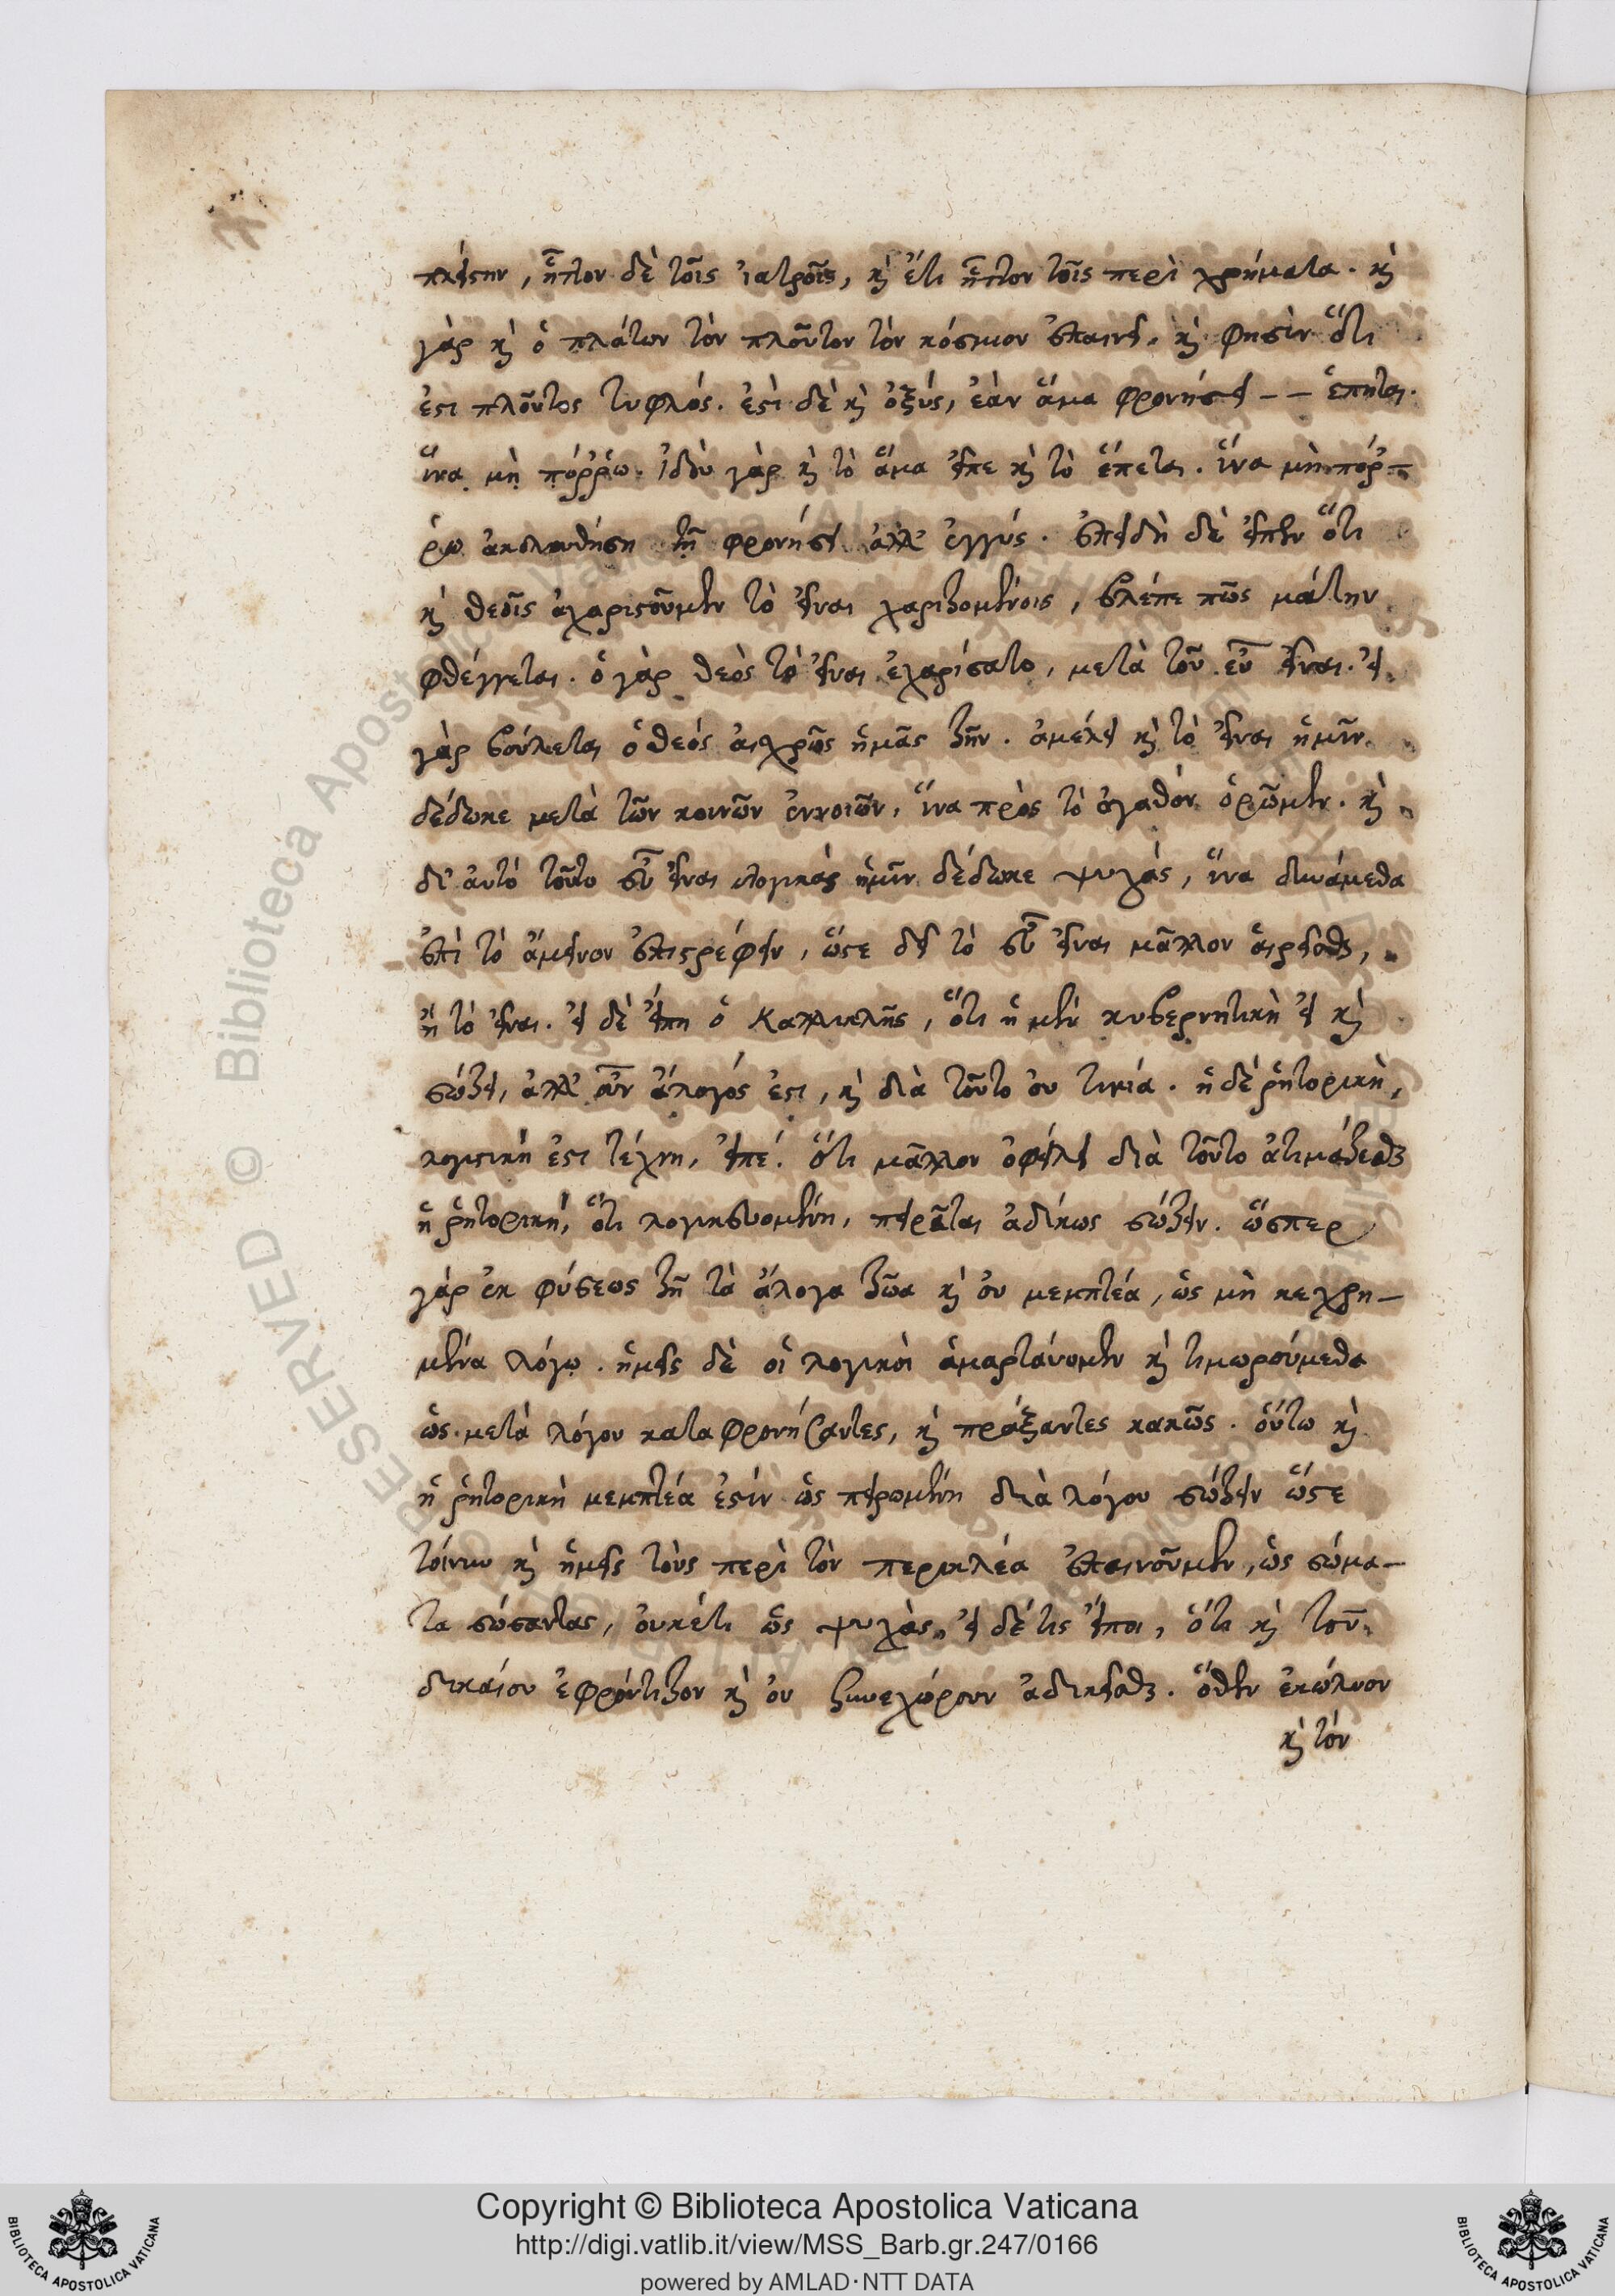 πλείστην, ἧττον δὲ τοῖς ἰατροῖς, κὶ ἔτι ἧττον τοῖς περὶ χρήματα. κὶ
γὰρ κὶ ὁ πλάτων τὸν πλοῦτον τὸν κόσμιον ἐπαινεῖ. κὶ φησὶν ὅτι
ἐστι πλοῦτος τυφλός. ἐστὶ δὲ κὶ ὀξύς, ἐὰν ἅμα φρονήσει -- ἕπηται.
ἵνα μὴ πόῤῥω. ἰδοὺ γὰρ κὶ τὸ ἅμα εἶπε κὶ τὸ ἕπεται. ἵνα μὴ πόῤ-
ῥω ἀκολουθήση τῆ φρονήσει ἀλλ' ἐγγύς. ἐπειδὴ δὲ εἶπεν ὅτι
κὶ θεοῖς ἀχαριστοῦμεν τὸ εἶναι χαριζομένοις, βλέπε πῶς μάτην
φθέγγεται. ὁ γὰρ θεὸς τὸ εἶναι ἐχαρίσατο, μετὰ τοῦ εὖ εἶναι. εἰ
γὰρ βούλεται ὁ θεός αἰσχρῶς ἡμᾶς ζῆν. ἀμέλει κὶ τὸ εἶναι ἡμῖν
δέδωκε μετὰ τῶν κοινῶν ἐννοιῶν, ἵνα πρὸς τὸ ἀγαθὸν ὁρῶμεν. κὶ
δι' αὐτὸ τοῦτο εὖ εἶναι λογικὰς ἡμῖν δέδωκε ψυχάς, ἵνα δυνάμεθα
ἐπὶ τὸ ἄμεινον ἐπιστρέφειν, ὥστε δεῖ τὸ εὖ εἶναι μᾶλλον αἱρεῖσθαι,
ἢ τὸ εἶναι. εἰ δὲ εἴπη ὁ Καλλικλῆς, ὅτι ἡ μὲν κυβερνητικὴ εἰ κὶ
σώζει, ἀλλ' οὖν ἄλογός ἐστι, κὶ διὰ τοῦτο οὐ τιμία. ἡ δὲ ῥητορικὴ,
λογιστικὴ ἐστι τέχνη, εἰπέ. ὅτι μᾶλλον ὀφείλει διὰ τοῦτο ἀτιμάζεσθαι
ἡ ῥητορική, ὅτι λογικευομένη, πειρᾶται ἀδίκως σώζειν. ὥσπερ
γὰρ ἐκ φύσεως ζῆ τὰ ἄλογα ζῶα κὶ οὐ μεμπτέα, ὡς μὴ κεχρη-
μένα λόγω. ἡμεῖς δὲ οἱ λογικοὶ ἁμαρτάνομεν κὶ τιμωρούμεθα
ὡς μετὰ λόγου καταφρονήσαντες, κὶ πράξαντες κακῶς. οὕτω κὶ
ἡ ῥητορικὴ μεμπτέα ἐστὶν ὡς πειρωμένη διὰ λόγου σώζειν ὥστε
τοίνυν κὶ ἡμεῖς τοὺς περὶ τὸν περικλέα ἐπαινοῦμεν, ὡς σώμα-
τα σώσαντας, οὐκέτι ὡς ψυχὰς, εἰ δέ τις εἴποι, ὅτι κὶ τοῦ
δικαίου ἐφρόντιζον κὶ οὐ ξυνεχώρουν ἀδικεῖσθαι. ὅθεν ἐκώλυον
κὶ τὸν
Copyright © Biblioteca Apostolica Vaticana
http://digi.vatlib.it/view/MSS_Barb.gr.247/0166
powered by AMLAD·NTT DATA